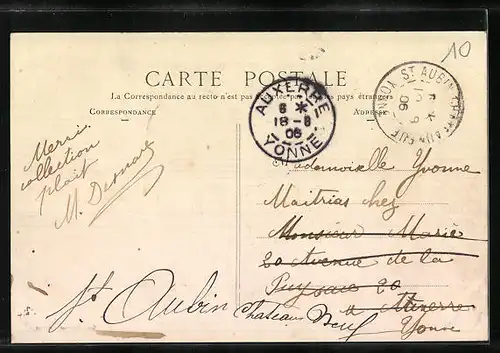 10
CARTE POSTALE
La Correspondance au recto n'est pas pays étrangers
CORRESPONDANCE
ADRESSE
AUXERRE
8 *
18-8
06
YONNE
ST AUBIN
06
Merci
collection
plait
M.
Mademoiselle Yvonne
Maitrias chez
Monsieur Marié
20 Avenue de la
20
à Auxerre
Yonne
St Aubin
Chateau Neuf